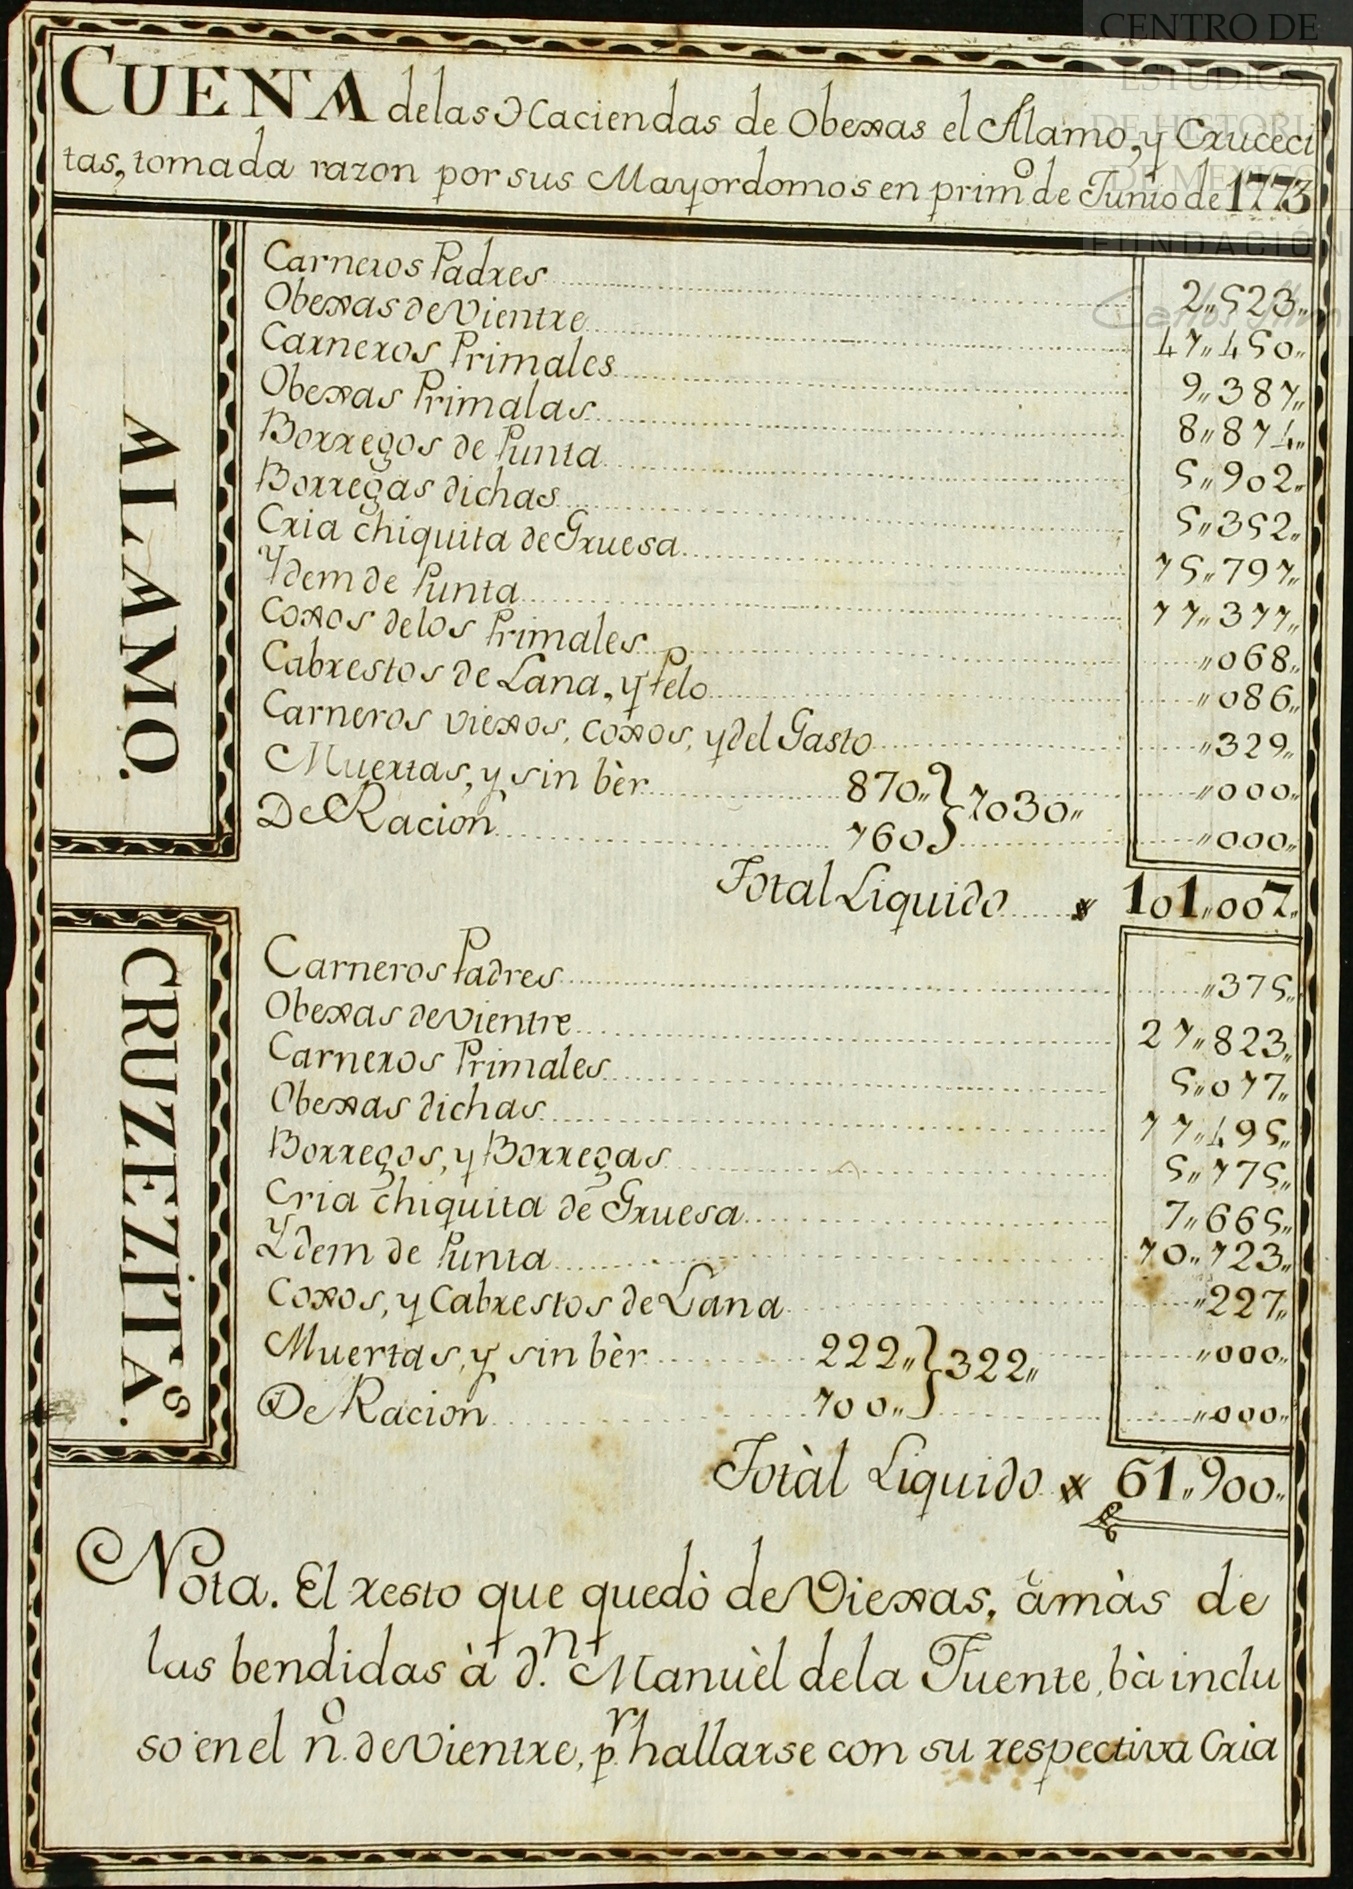 CENTRO DE
ESTUDIOS
DE HISTORI
DE MEXICO
FUNDACIÓN
Carlos Slim
CUENTA delas Haciendas de Obexas el Alamo, y Cruceci
tas, tomada razon por sus Mayordomos en prim.º de Junio de 1773
ALAMO.
Carneros Padres 2,,523,,
Obexas de Vientre 41,,450,,
Carneros Primales 9,,381,,
Obexas Primalas 8,,814,,
Borregos de Punta 5,,902,,
Borregas dichas 5,,352,,
Cria chiquita de Gruesa 15,,791,,
Ydem de Punta 11,,311,,
Coxos delos Primales ,,068,,
Cabrestos de Lana, y Pelo ,,086,,
Carneros viexos, coxos, y del Gasto ,,329,,
Muertas, y sin bèr 870,, } 1030,, ,,000,,
De Racion 160 ,,000,,
Total Liquido 101,,007,,
CRUZEZITAS.
Carneros Padres ,,375,,
Obexas de Vientre 21,,823,,
Carneros Primales 5,,017,,
Obexas dichas 11,,495,,
Borregos, y Borregas 5,,115,,
Cria chiquita de Gruesa 7,,665,,
Ydem de Punta 10,,123,,
Coxos, y Cabrestos de Lana ,,227,,
Muertas, y sin bèr 222,, } 322,, ,,000,,
De Racion 100,, ,,000,,
Totàl Liquido 61,,900,,
Nota. El resto que quedò de Viexas, àmàs de
las bendidas à d.n Manuèl dela Fuente, bà inclu
so en el n.º de Vientre, p.r hallarse con su respectiva Cria